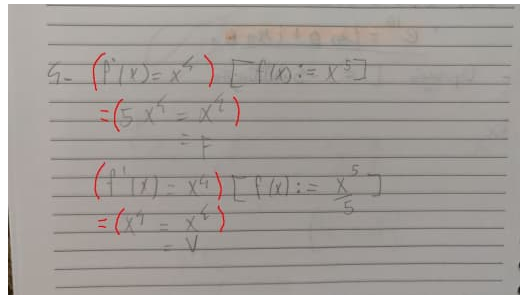 4- (f'(x) = x⁴) [f(x) := x⁵]
= (5x⁴ = x⁴)
= F
(f'(x) = x⁴) [f(x) := x⁵/5]
= (x⁴ = x⁴)
= V